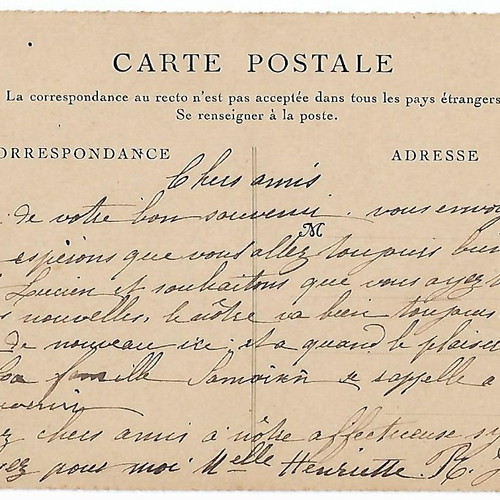 CARTE POSTALE
La correspondance au recto n'est pas acceptée dans tous les pays étrangers
Se renseigner à la poste.
ORRESPONDANCE ADRESSE
Chers amis
de votre bon souvenir. vous envo
M
espérons que vous allez toujours bien
Lucien et souhaitons que vous ayez
nouvelles, le nôtre va bien toujours
De nouveau ici; et a quand le plaisir
La famille rappelle a
chers amis à nôtre affectueuse
pour moi Melle Henriette R.